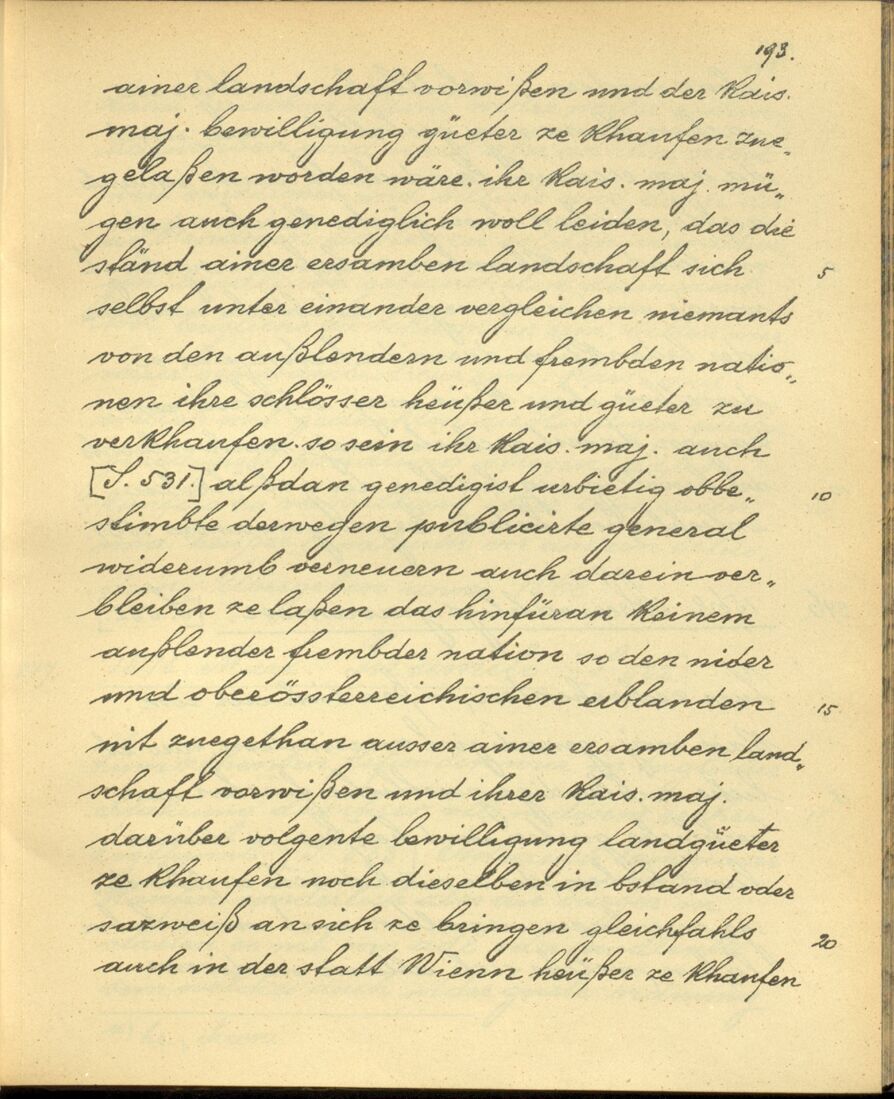 193.
ainer landschaft vorwißen und der kais.
maj. bewilligung güeter ze khaufen zue„
gelaßen worden wäre. ihr kais. maj. mü„
gen auch genediglich woll leiden, das die
ständ ainer ersamben landschaft sich 5
selbst unter einander vergleichen niemants
von den außlendern und frembden natio„
nen ihre schlösser heüßer und güeter zu
verkhaufen. so sein ihr kais. maj. auch
[S. 531.] alßdan genedigist urbietig obbe„ 10
stimbte derwegen publicirte general
widerumb verneuern auch darein ver„
bleiben ze laßen das hinfüran keinem
außlender frembder nation so den nider
und oberössterreichischen erblanden 15
nit zuegethan ausser ainer ersamben land„
schaft vorwißen und ihrer kais. maj.
darüber volgente bewilligung landgüeter
ze khaufen noch dieselben in bstand oder
sazweiß an sich ze bringen gleichfahls 20
auch in der statt Wienn heüßer ze khaufen